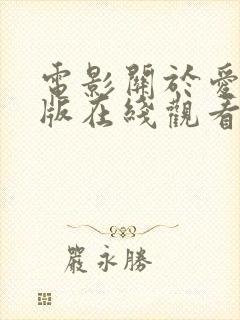 電影關於愛
版在綫觀看
嚴永勝